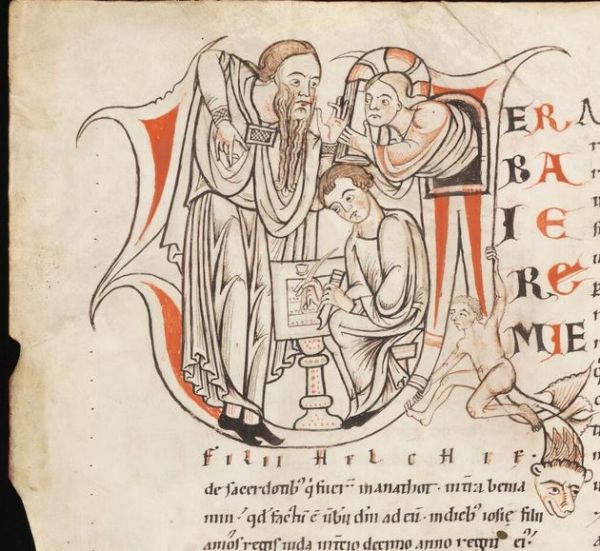 VER
BA
IE
RE
MIE
FILII HELCHIE·
de sacerdotib' q̇ fuer̄ in anathot· in t̄ra benia
min· qd̄ factū ē ūbū dn̄i ad eū· in dieb' iosię filii
amos regis iuda in t̄cio decimo anno regni ei'